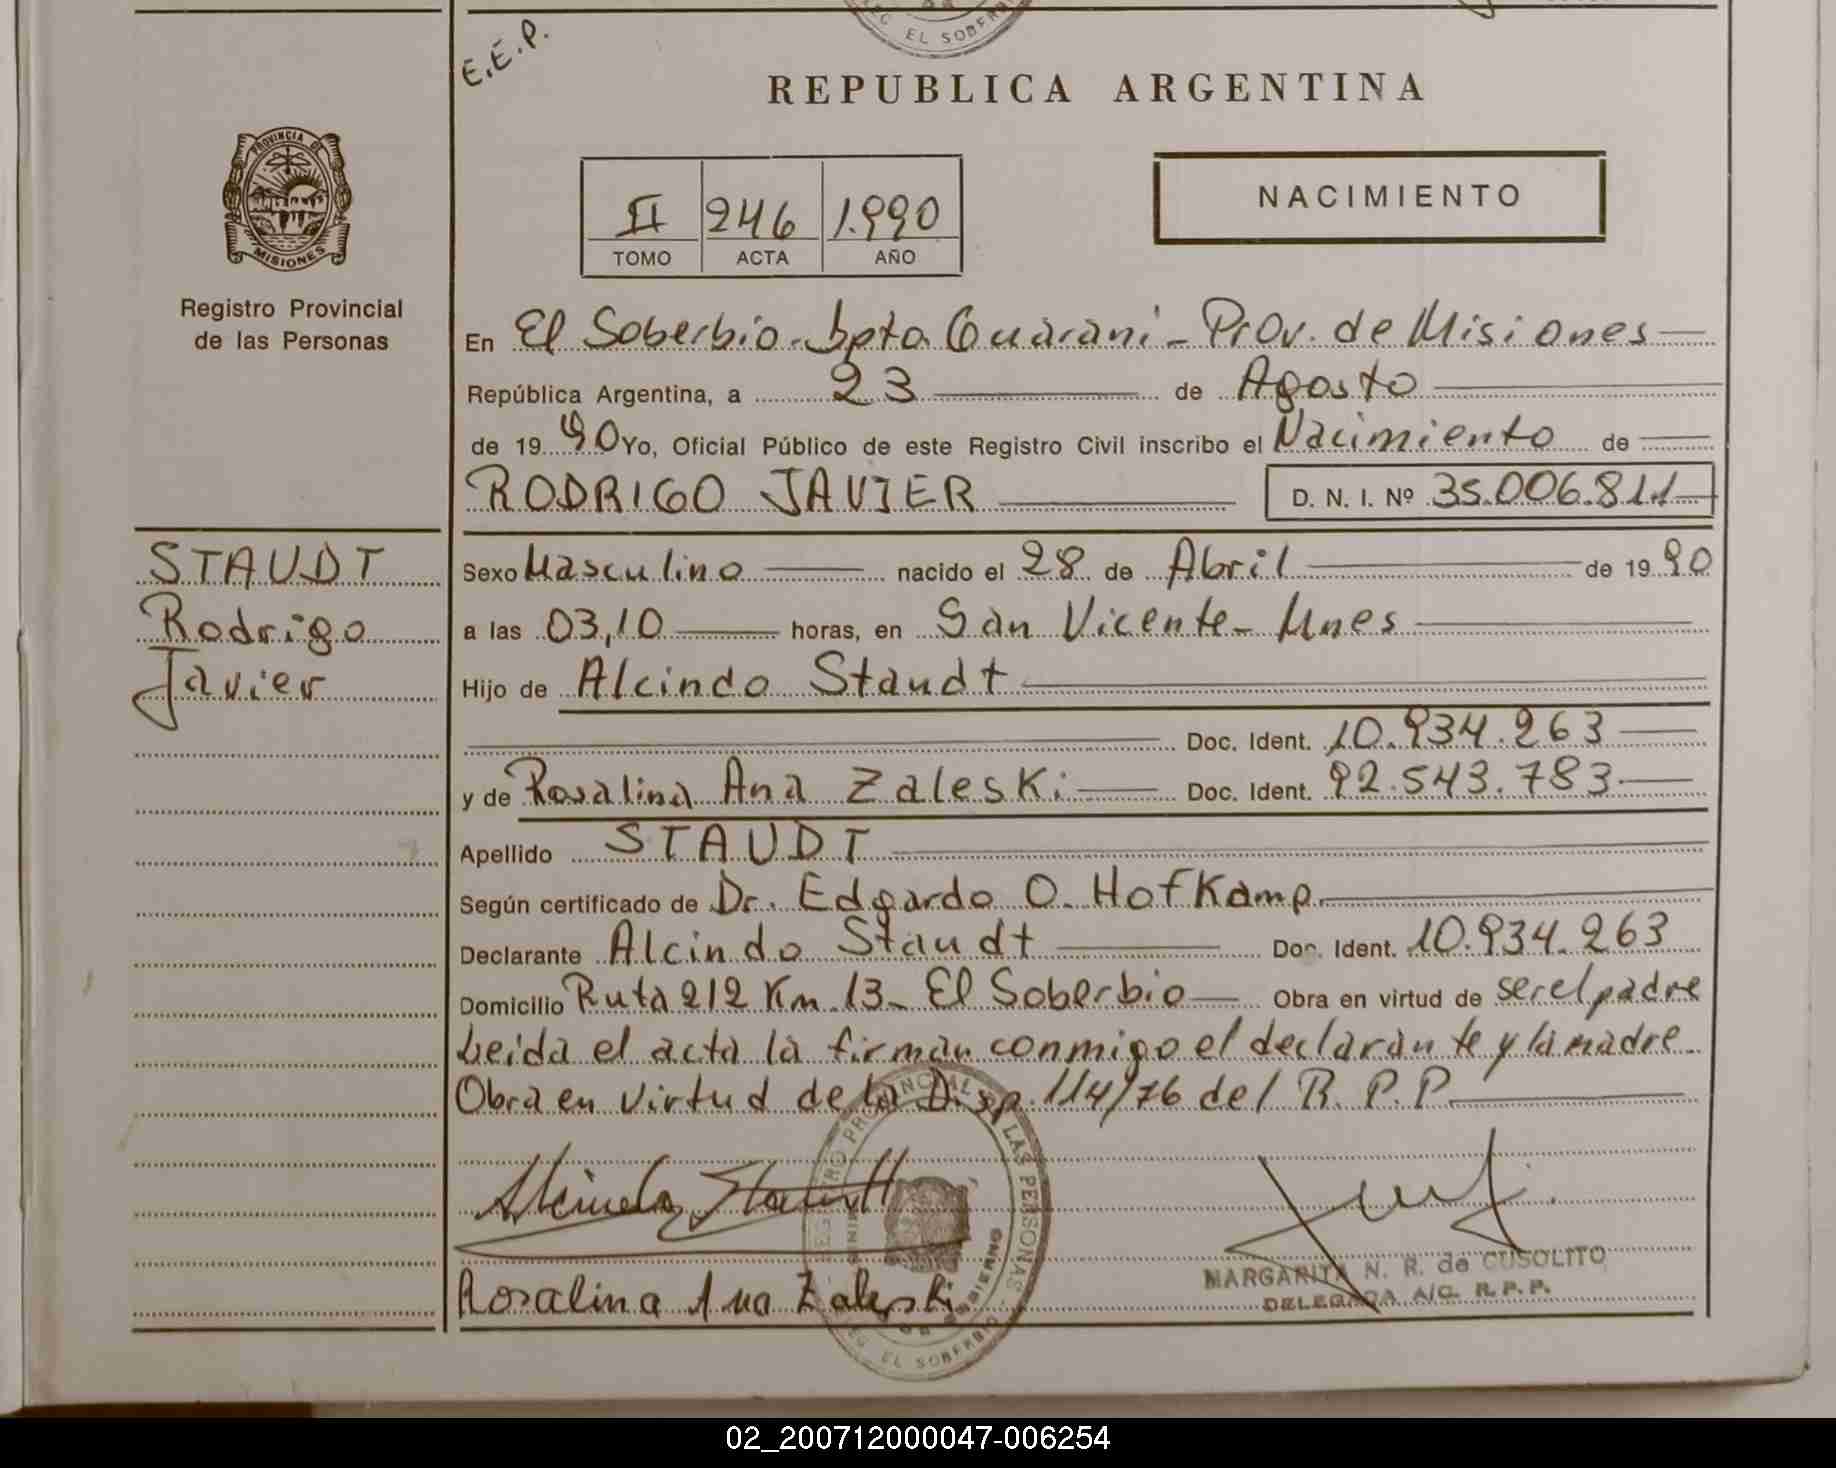 EL SOBERBIO
E.E.P.
REPUBLICA ARGENTINA
PROVINCIA DE
MISIONES
II 246 1.990
TOMO ACTA AÑO
NACIMIENTO
Registro Provincial
de las Personas
En El Soberbio-Dpto Guarani-Prov. de Misiones
República Argentina, a 23 de Agosto
de 19 90 Yo, Oficial Público de este Registro Civil inscribo el Nacimiento de
RODRIGO JAVIER D. N. I. Nº 35.006.811
STAUDT
Rodrigo
Javier
Sexo Masculino nacido el 28 de Abril de 19 90
a las 03,10 horas, en San Vicente- Mnes
Hijo de Alcindo Staudt
Doc. Ident. 10.934.263
y de Rosalina Ana Zaleski Doc. Ident. 92.543.783
Apellido STAUDT
Según certificado de Dr. Edgardo O. Hofkamp
Declarante Alcindo Staudt Doc. Ident. 10.934.263
Domicilio Ruta 212 Km. 13- El Soberbio Obra en virtud de ser el padre
Leida el acta la firman conmigo el declarante y la madre
Obra en virtud de la Disp. 114/76 del R. P. P.
Alcindo Staudt
Rosalina Ana Zaleski
REGISTRO PROVINCIAL DE LAS PERSONAS
EL SOBERBIO
MARGARITA N. R. de CUSOLITO
DELEGADA A/C. R.P.P.
02_200712000047-006254